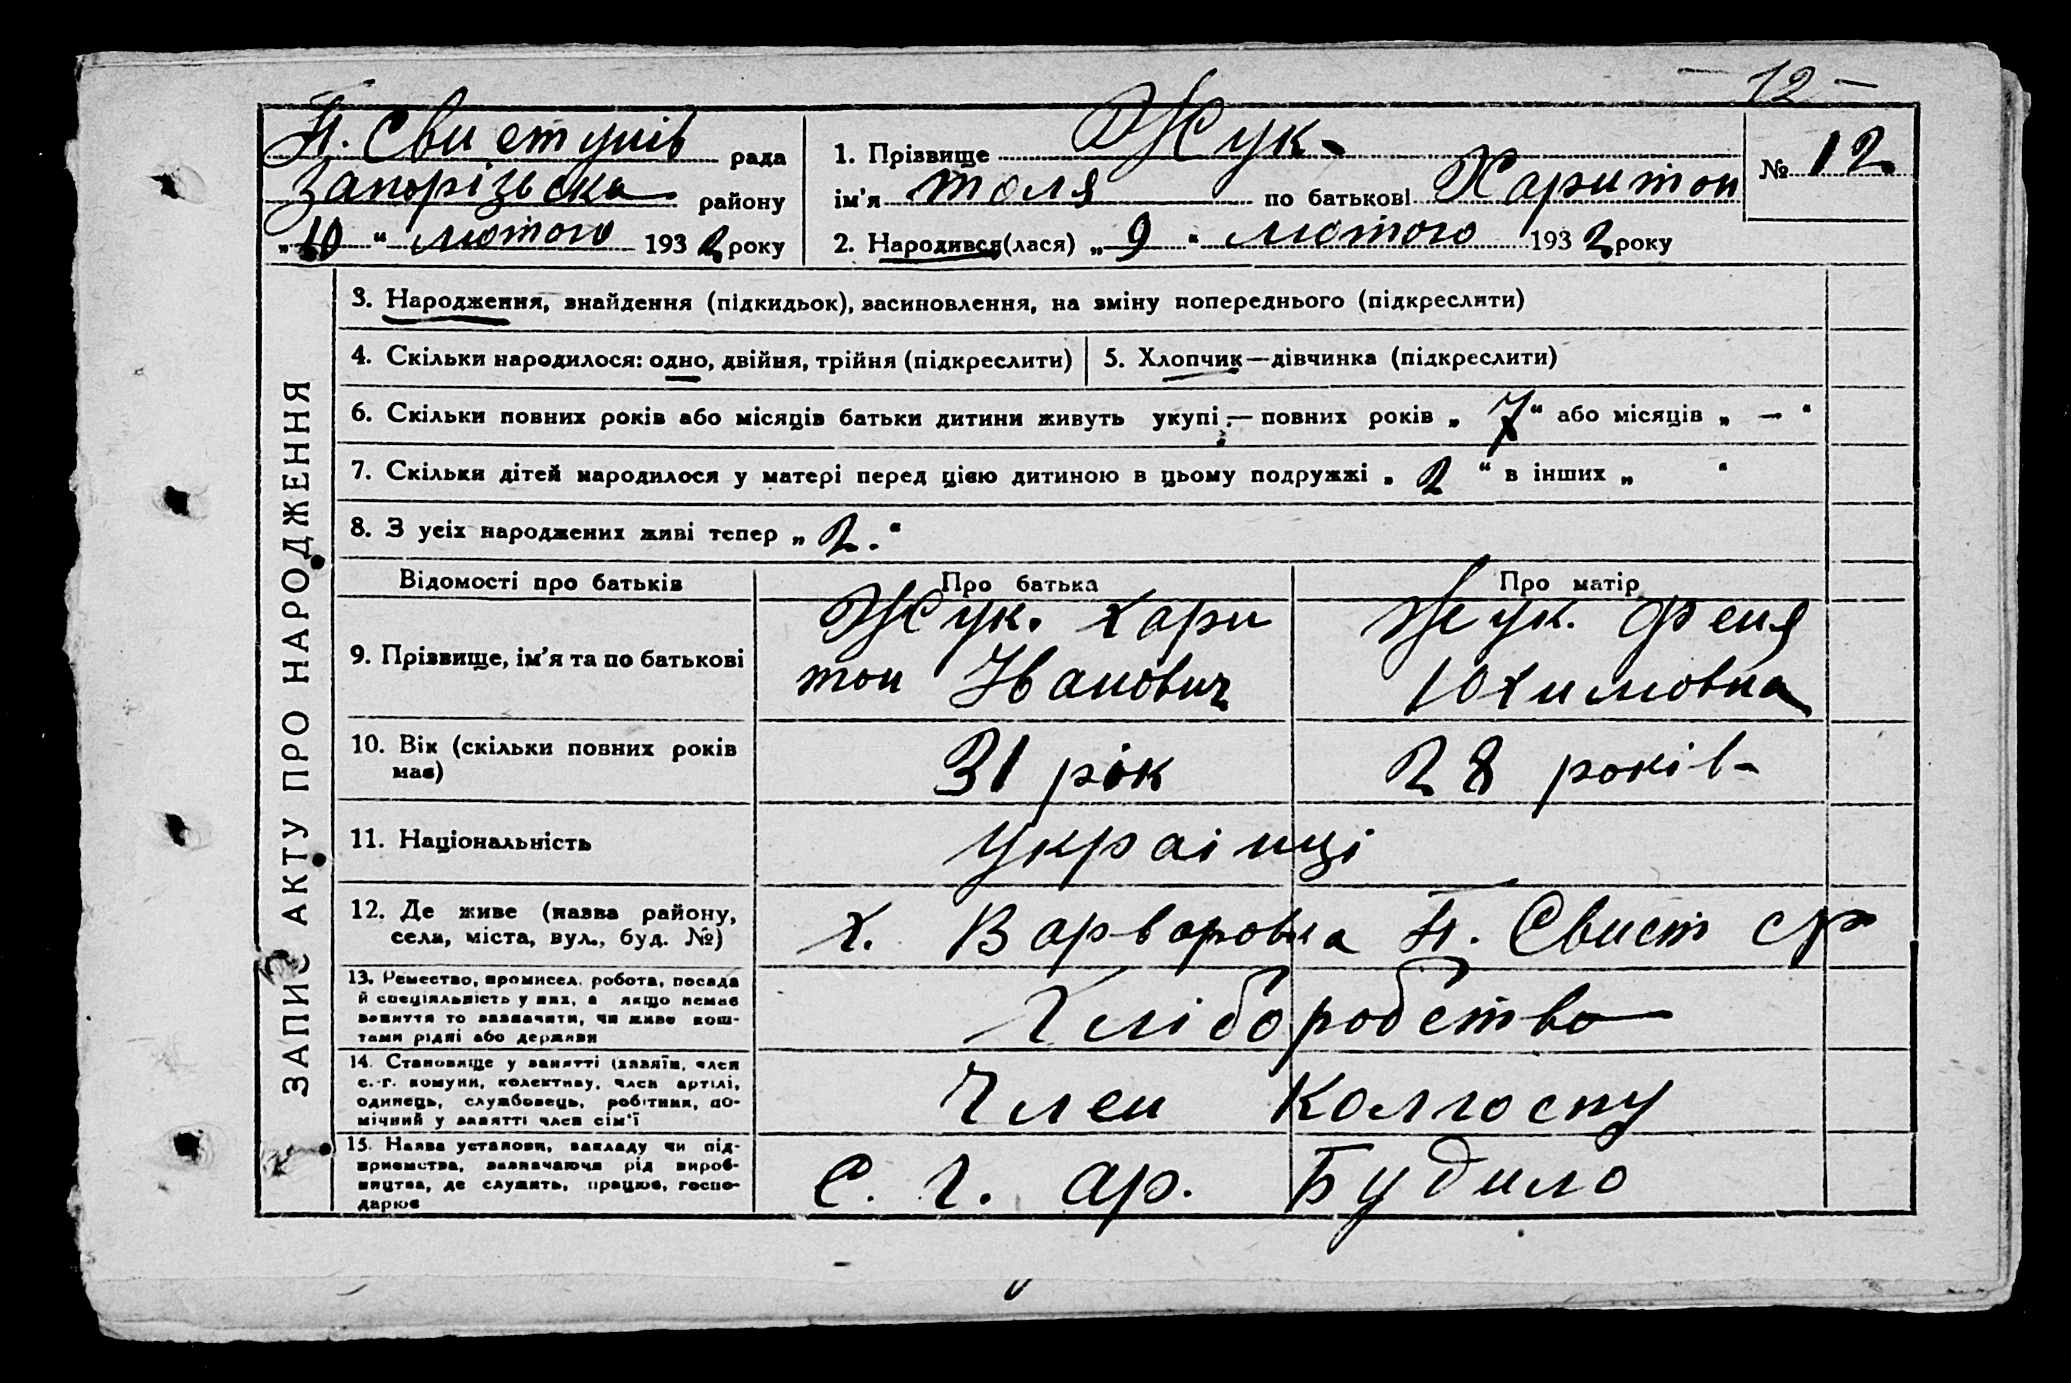 — 12 —
П. Свистунів рада
Запорізьска району
„10“ лютого 1932 року
1. Прізвище Жук.
ім'я толя по батькові Харитон
2. Народився(лася) „9“ лютого 1932 року
№ 12.
ЗАПИС АКТУ ПРО НАРОДЖЕННЯ
3. Народження, знайдення (підкидьок), засиновлення, на зміну попереднього (підкреслити)
4. Скільки народилося: одно, двійня, трійня (підкреслити)
5. Хлопчик—дівчинка (підкреслити)
6. Скільки повних років або місяців батьки дитини живуть укупі:— повних років „7“ або місяців „—“
7. Скільки дітей народилося у матері перед цією дитиною в цьому подружжі „2“ в інших „ “
8. З усіх народжених живі тепер „2.“
Відомості про батьків
Про батька
Про матір
9. Прізвище, ім'я та по батькові
Жук. Хари
тон Іванович
Жук. Феня
Юхимовна
10. Вік (скільки повних років
має)
31 рік
28 років-
11. Національність
Українці
12. Де живе (назва району,
села, міста, вул., буд. №)
х. Варваровка П. Свист с/р
13. Ремество, промисел, робота, посада
й спеціяльність у них, а якщо немає
заняття то зазначити, чи живе кош-
тами рідні або держави
Хліборобство
14. Становище у занятті (хазяїн, член
с.-г. комуни, колективу, член артілі,
одинець, службовець, робітник, по-
мічний у занятті член сім'ї
Член колгоспу
15. Назва установи, закладу чи під-
приємства, зазначаючи рід вироб-
ництва, де служить, працює, госпо-
дарює
С. г. ар. Будило